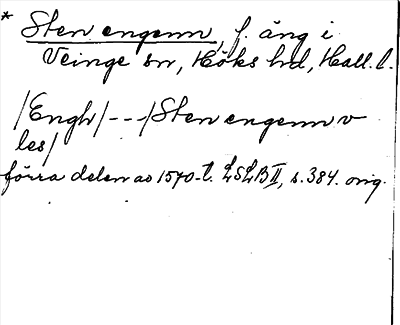 * Sten engenn, f. äng i
Veinge sn, Höks hd, Hall. l.
/Engh/ --- /Sten engenn v
les/
förra delen av 1570-t. LSLB II, s. 384. orig.